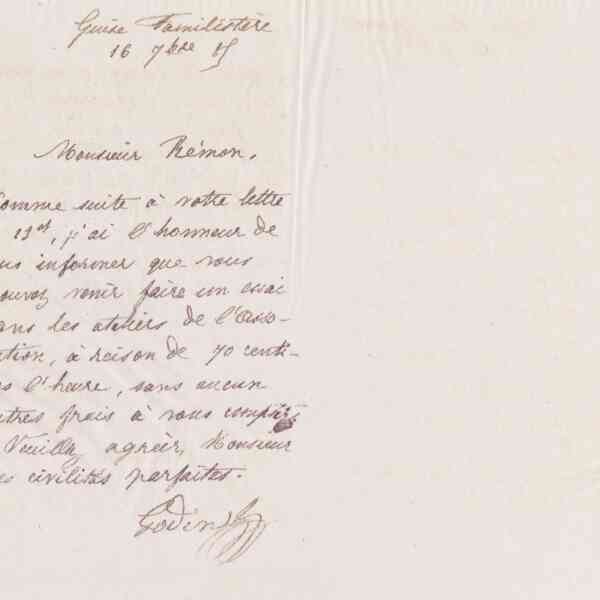 Guise Familistère
16 7bre 85
Monsieur Rémon.
Comme suite à votre lettre
13 ct, j'ai l'honneur de
ous informer que vous
ouvez venir faire un essai
ans les ateliers de l'Asso-
ation, à raison de 70 centi-
es l'heure, sans aucun
utres frais à vous compter
Veuillez agréer, Monsieur
es civilités parfaites.
Godin